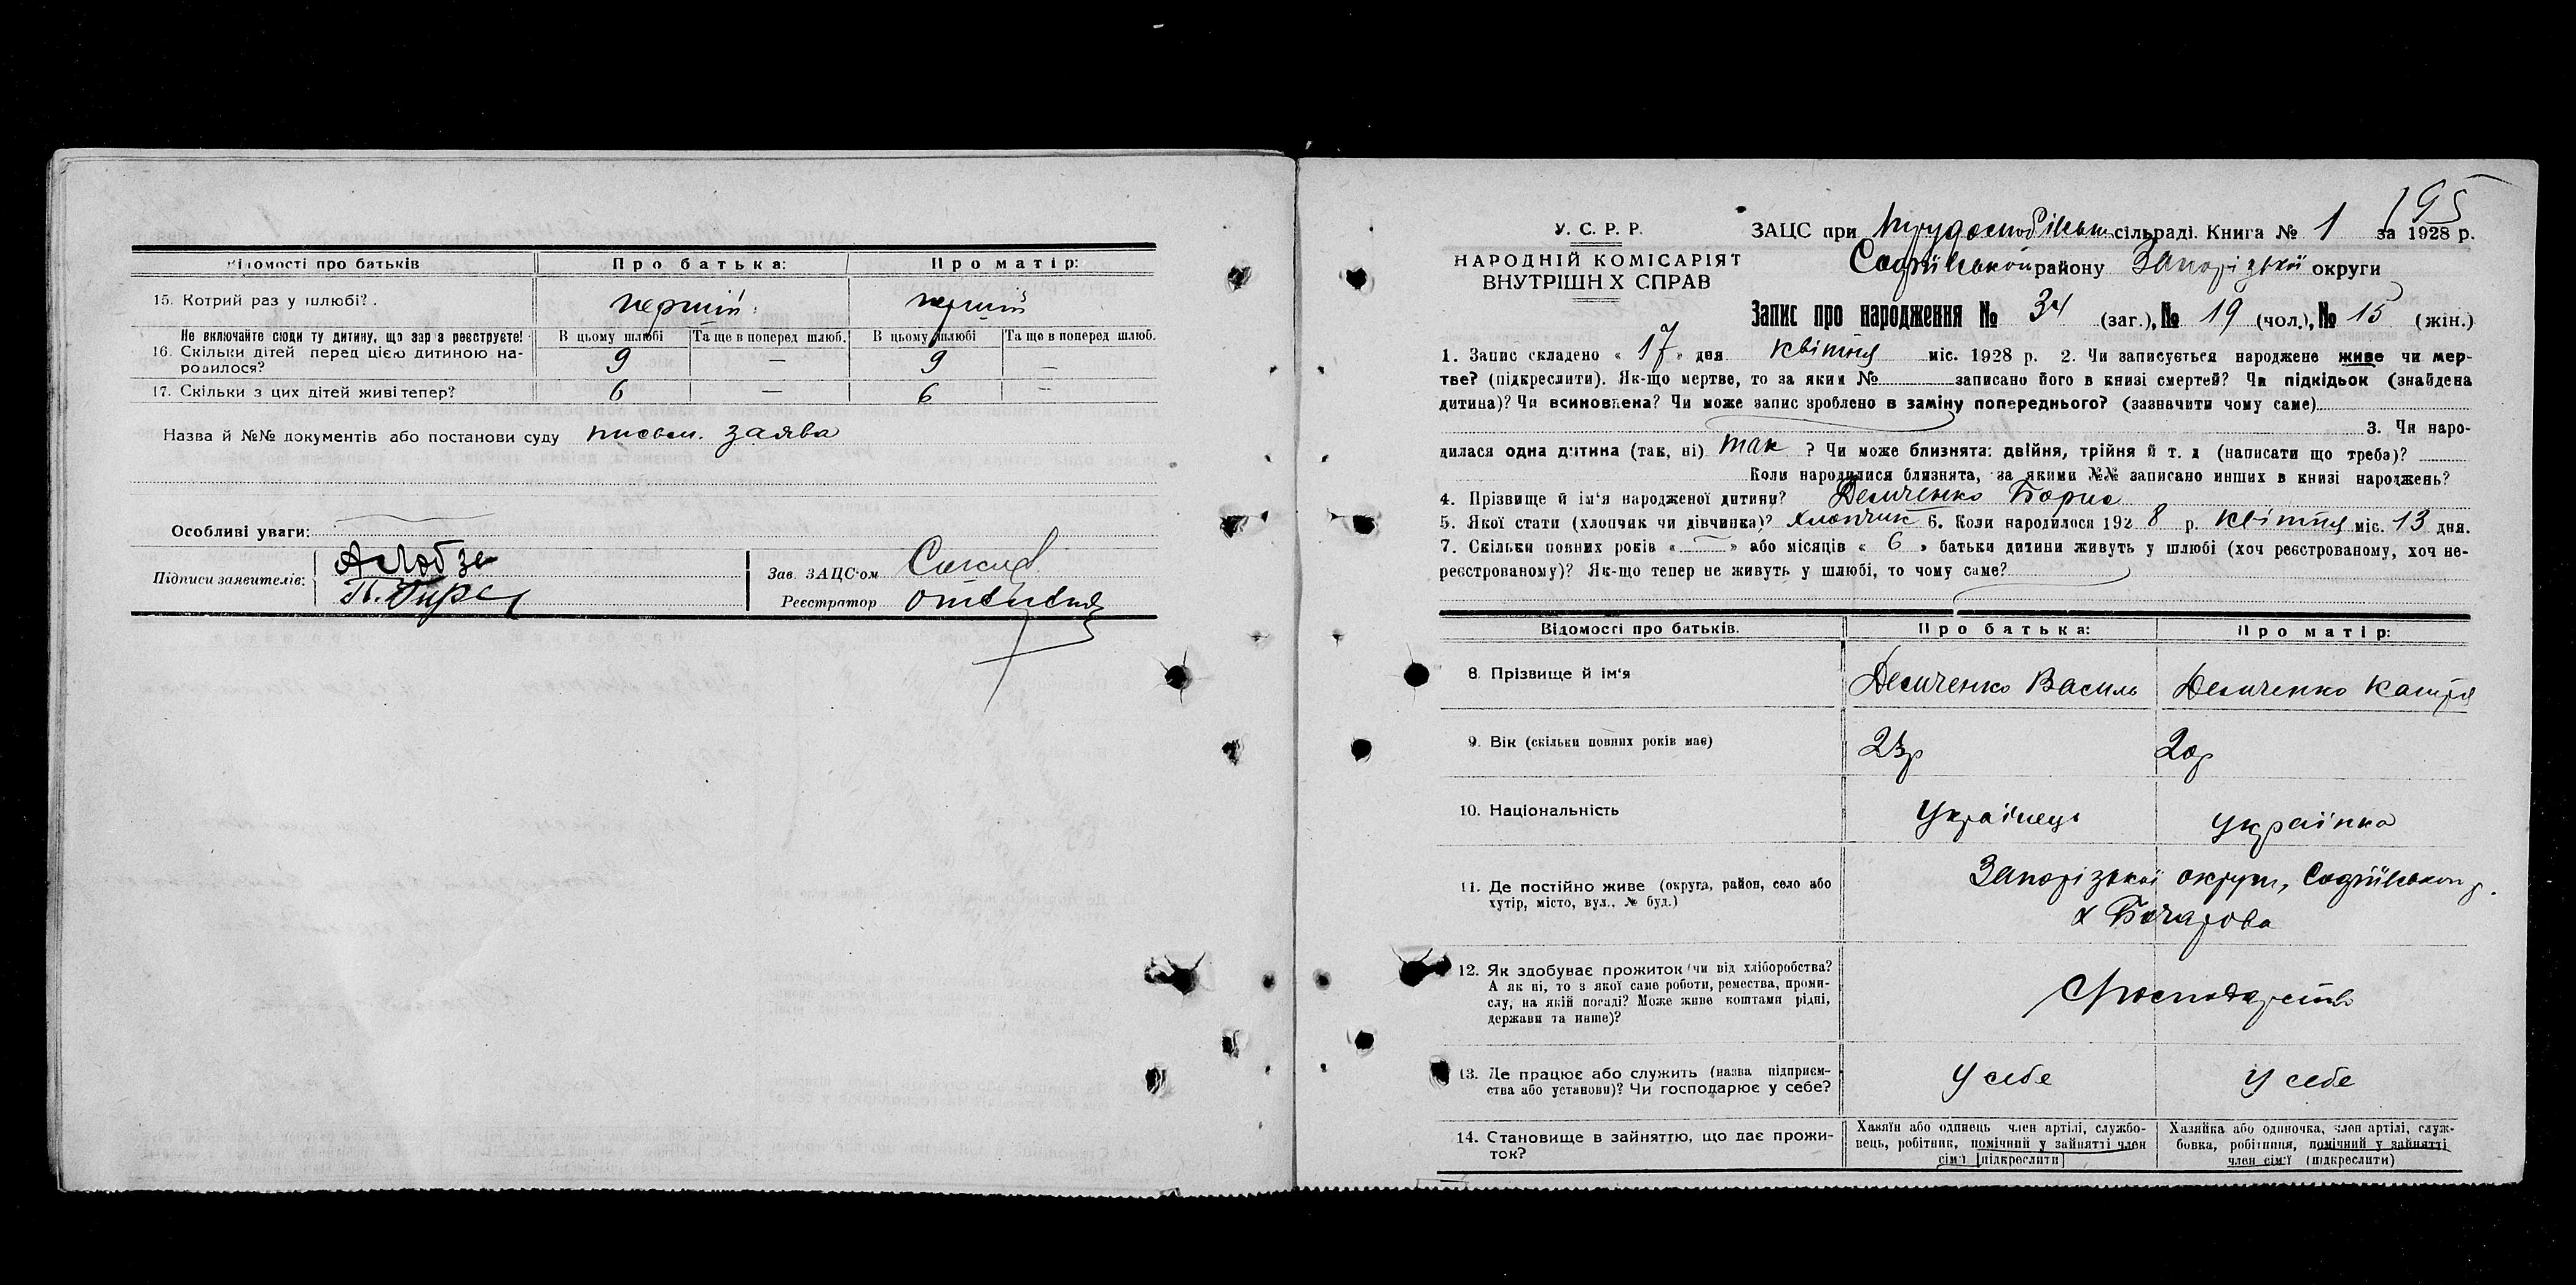 Відомості про батьків
Про батька:
Про матір:
15. Котрий раз у шлюбі?
перший
перший
Не включайте сюди ту дитину, що зараз реєструєте!
В цьому шлюбі
Та ще в поперед шлюб.
В цьому шлюбі
Та ще в поперед шлюб.
16. Скільки дітей перед цією дитиною на-
родилося?
9
—
9
—
17. Скільки з цих дітей живі тепер?
6
—
6
—
Назва й №№ документів або постанови суду письм. заява
Особливі уваги:
Підписи заявителів:
Зав. ЗАЦС'ом
Реєстратор
195
У. С. Р. Р.
НАРОДНІЙ КОМІСАРІЯТ
ВНУТРІШНІХ СПРАВ
ЗАЦС при сільраді. Книга № 1 за 1928 р.
Софіївської району Запорізької округи
Запис про народження № 34 (заг.), № 19 (чол.), № 15 (жін.)
1. Запис складено « 17 » дня квітня міс. 1928 р. 2. Чи записується народжене живе чи мер-
тве? (підкреслити). Як-що мертве, то за яким № записано його в книзі смертей? Чи підкідьок (знайдена
дитина)? Чи всиновлена? Чи може запис зроблено в заміну попереднього? (зазначити чому саме)
3. Чи наро-
дилася одна дитина (так, ні) так ? Чи може близнята: двійня, трійня й т. д (написати що треба)?
Коли народилися близнята, за якими №№ записано инших в книзі народжень?
4. Прізвище й ім'я народженої дитини? Демченко Борис
5. Якої стати (хлопчик чи дівчинка)? хлопчик 6. Коли народилося 192 8 р. квітня міс. 13 дня.
7. Скільки повних років « — » або місяців « 6 » батьки дитини живуть у шлюбі (хоч реєстрованому, хоч не-
реєстрованому)? Як-що тепер не живуть у шлюбі, то чому саме?
Відомості про батьків.
Про батька:
Про матір:
8. Прізвище й ім'я
Демченко Василь
Демченко Катря
9. Вік (скільки повних років має)
23р
20р
10. Національність
Українець
українка
11. Де постійно живе (округа, район, село або
хутір, місто, вул., № буд.)
Запорізької округи, Софіївського р.
х Бочарова
12. Як здобуває прожиток (чи від хліборобства?
А як ні, то з якої саме роботи, ремества, проми-
слу, на якій посаді? Може живе коштами рідні,
держави та инше)?
13. Де працює або служить (назва підприєм-
ства або установи)? Чи господарює у себе?
У себе
У себе
14. Становище в зайняттю, що дає прожи-
ток?
Хазяїн або одинець член артілі, службо-
вець, робітник, помічний у зайнятті член
сім'ї [підкреслити]
Хазяйка або одиночка, член артілі, служ-
бовка, робітниця, помічний у зайнятті
член сім'ї (підкреслити)